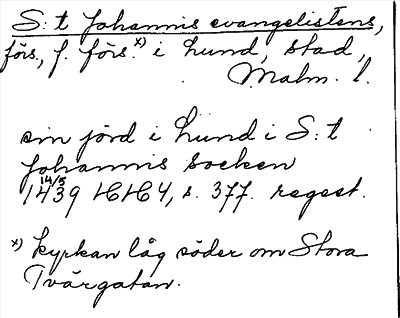 S:t Johannis evangelistens,
förs., f. förs. x) i Lund, stad,
Malm. l.
sin jörd i Lund i S:t
Johannis socken
14/5
1439 HH 4, s. 377. regest.
x) Kyrkan låg söder om Stora
Tvärgatan.